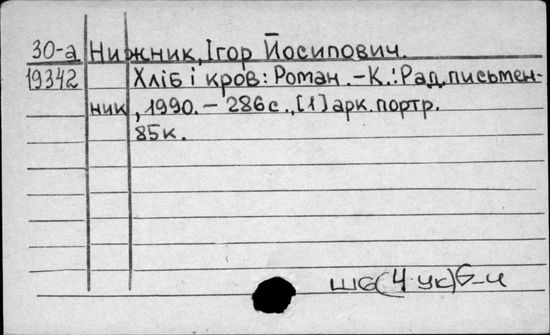 30-а Нижник, Ігор Йосипович.
19342 Хліб і кров: Роман. – К.: Рад. письмен-
ник, 1990. – 286 с., [1] арк. портр.
85к.
ш6(4 ук)6-4